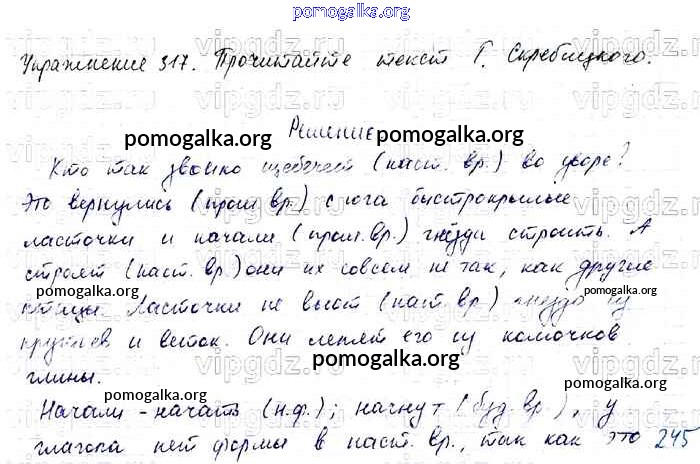 pomogalka.org
Упражнение 317. Прочитайте текст Г. Скребицкого.
Решение
pomogalka.org
Кто так звонко щебечет (наст. вр.) во дворе?
Это вернулись (прош. вр.) с юга быстрокрылые
ласточки и начали (прош. вр.) гнёзда строить. А
строят (наст. вр.) они их совсем не так, как другие
птицы. Ласточки не вьют (наст. вр.) гнездо из
прутьев и веток. Они лепят его из комочков
глины.
Начали - начать (н.ф.); начнут (буд. вр.), у
глагола нет формы в наст. вр., так как это 245